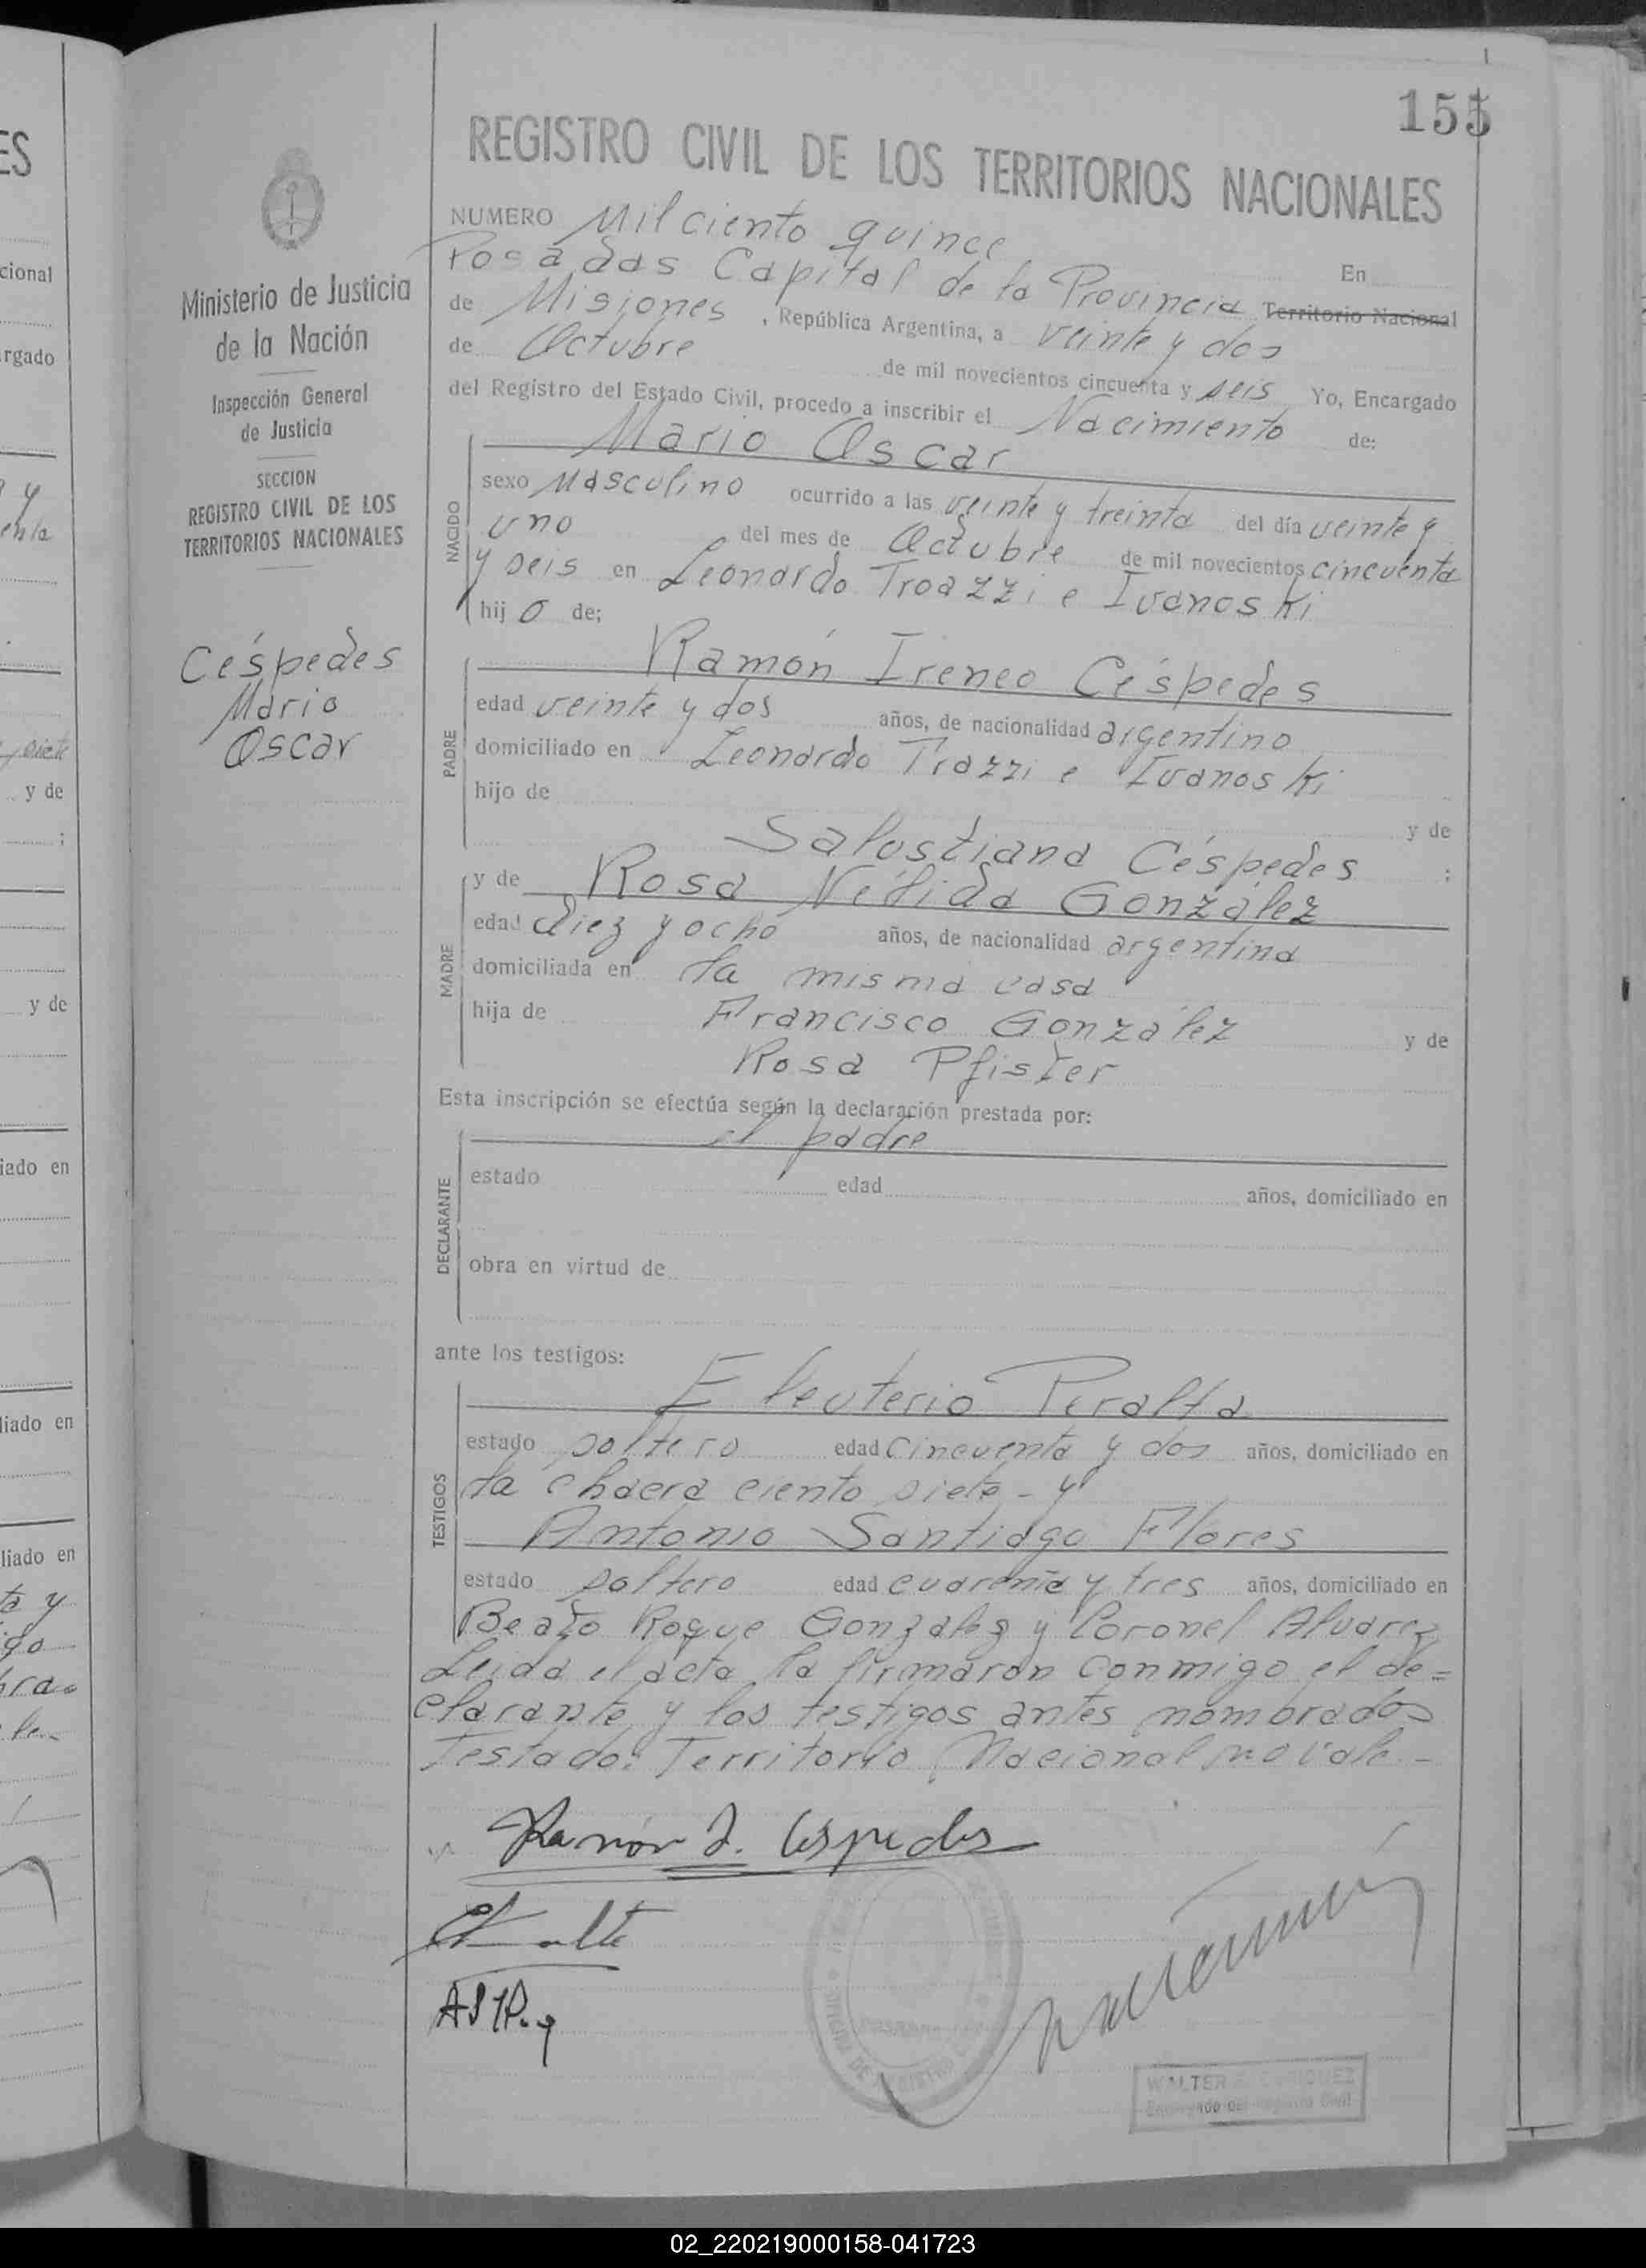 155
REGISTRO CIVIL DE LOS TERRITORIOS NACIONALES
Ministerio de Justicia
de la Nación
Inspección General
de Justicia
SECCION
REGISTRO CIVIL DE LOS
TERRITORIOS NACIONALES
Céspedes
Mario
Oscar
NUMERO Mil ciento quince
En
Posadas Capital de la Provincia Territorio Nacional
de Misiones, República Argentina, a veinte y dos
de Octubre de mil novecientos cincuenta y seis Yo, Encargado
del Registro del Estado Civil, procedo a inscribir el Nacimiento de:
NACIDO
Mario Oscar
sexo Masculino ocurrido a las veinte y treinta del día veinte y
uno del mes de Octubre de mil novecientos cincuenta
y seis en Leonardo Troazzi e Ivanoski
hijo de;
PADRE
Ramón Ireneo Céspedes
edad veinte y dos años, de nacionalidad argentino
domiciliado en Leonardo Trazzi e Ivanoski
hijo de
y de
Salustiana Céspedes ;
MADRE
y de Rosa Nélida González
edad diez y ocho años, de nacionalidad argentina
domiciliada en la misma casa
hija de Francisco González y de
Rosa Pfister
Esta inscripción se efectúa según la declaración prestada por:
DECLARANTE
el padre
estado edad años, domiciliado en
obra en virtud de
ante los testigos:
TESTIGOS
Eleuterio Peralta
estado soltero edad cincuenta y dos años, domiciliado en
la chacra ciento siete - y
Antonio Santiago Flores
estado soltero edad cuarenta y tres años, domiciliado en
Beato Roque Gonzalez y Coronel Alvarez
Leida el acta la firmaron conmigo el de=
clarante y los testigos antes nombrados
Testado: Territorio Nacional no vale.-
Ramón I. Céspedes
WALTER
Encargado del Registro Civil
02_220219000158-041723